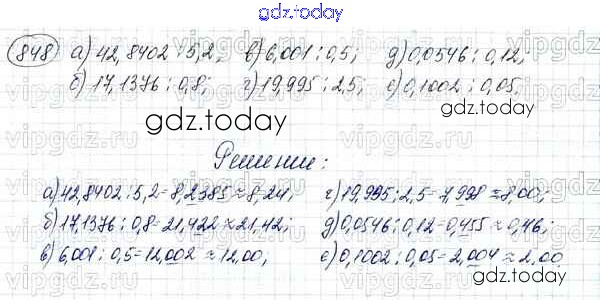 gdz.today
848 а) 42,8402 : 5,2; в) 6,001 : 0,5; д) 0,0546 : 0,12;
б) 17,1376 : 0,8; г) 19,995 : 2,5; е) 0,1002 : 0,05.
gdz.today
Решение:
а) 42,8402 : 5,2 = 8,2385 ≈ 8,24; г) 19,995 : 2,5 = 7,998 ≈ 8,00;
б) 17,1376 : 0,8 = 21,422 ≈ 21,42; д) 0,0546 : 0,12 = 0,455 ≈ 0,46;
в) 6,001 : 0,5 = 12,002 ≈ 12,00; е) 0,1002 : 0,05 = 2,004 ≈ 2,00
gdz.today